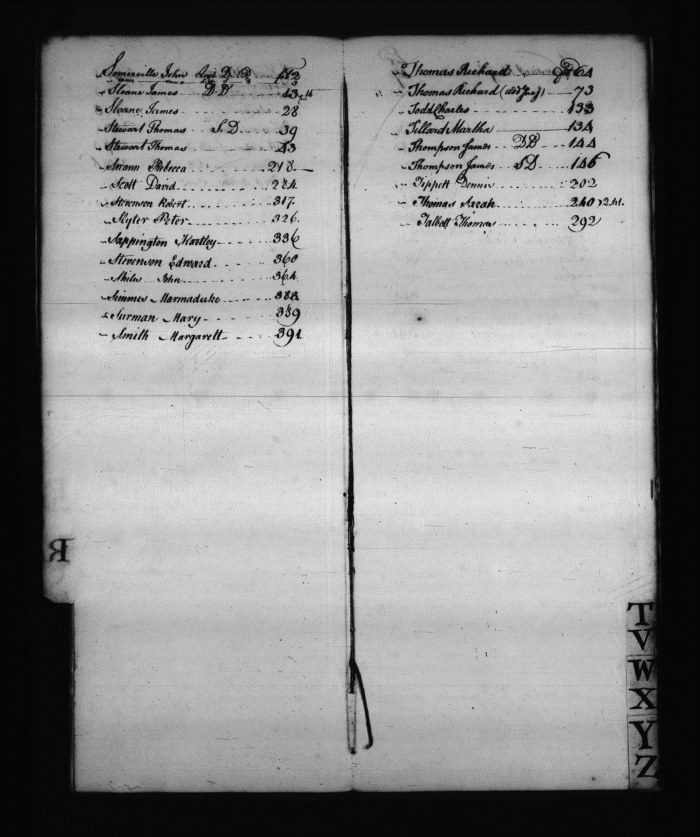 Somerville John D D 12
Sloane James D D 13, 14
Sloane James 28
Stewart Thomas S. D. 39
Stewart Thomas 43
Swann Rebecca 218
Scott David 284
Stevenson Robert 317
Slyter Peter 326
Sappington Hartley 336
Stevenson Edward 360
Shiles John 364
Simmes Marmaduke 388
Surman Mary 389
Smith Margarett 391
R
Thomas Richard 64
Thomas Richard 73
Todd Charles 133
Tillard Martha 134
Thompson James D D 144
Thompson James S D 146
Tippett Dennis 202
Thomas Sarah 240, 241
Talbott Thomas 292
T
V
W
X
Y
Z